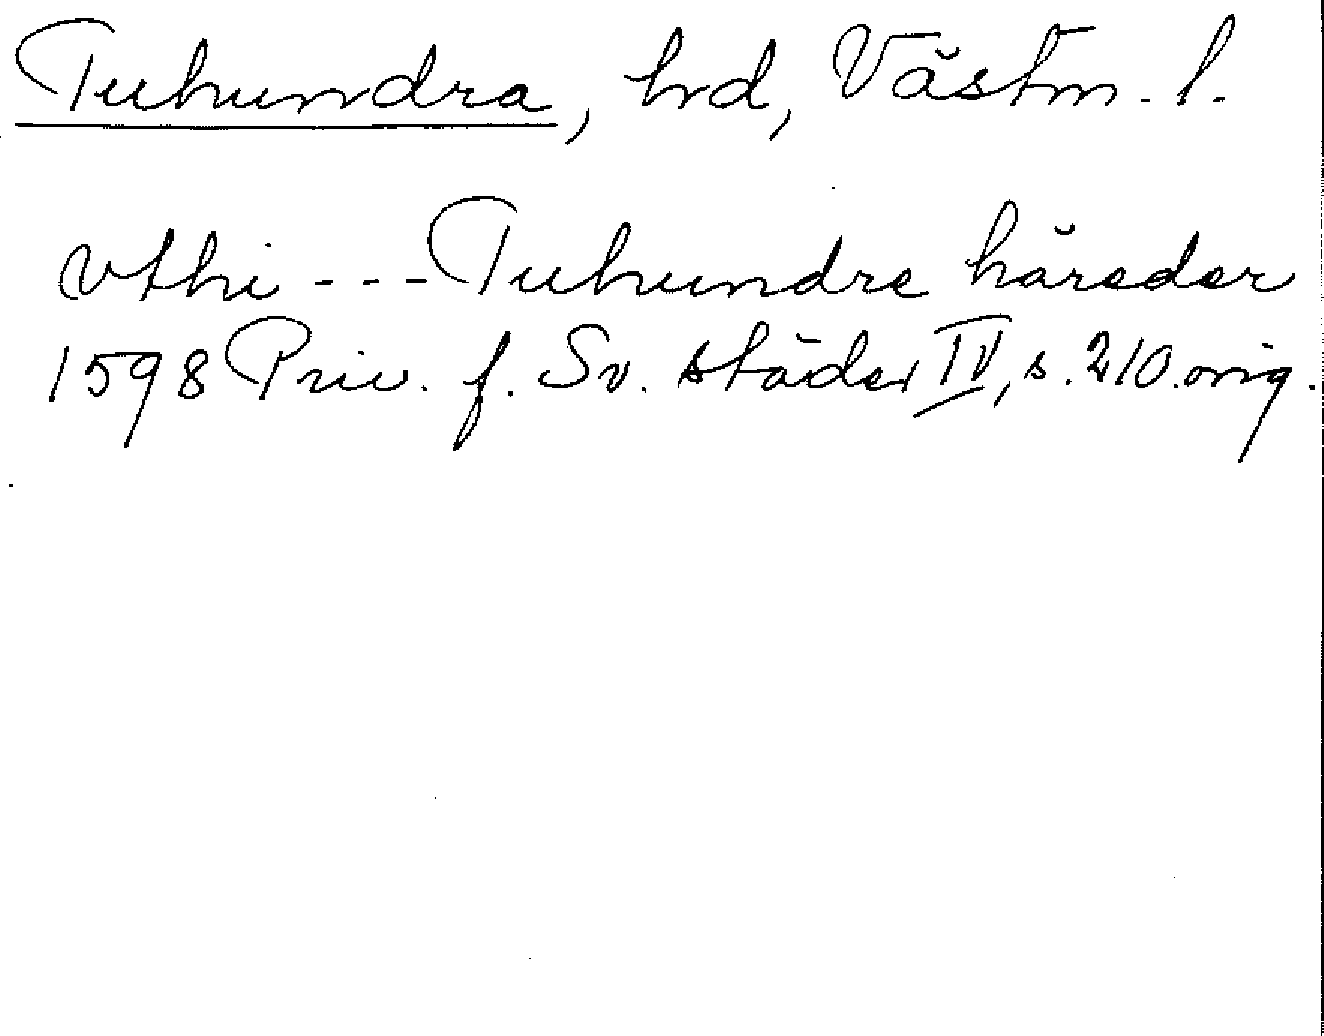 Tuhundra, hrd, Västm. l.
vthi --- Tuhundre häreder
1598 Priv. f. Sv. städer IV, s. 210. orig.